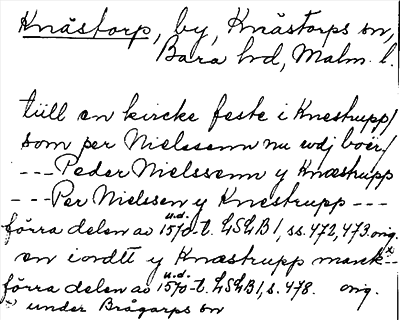 Knästorp, by, Knästorps sn,
Bara hd, Malm. l.
tiill en kircke feste i Knestrupp/
som per Nielssenn nu wdj boer/
--- Peder Nielssenn y Knæstrupp
--- Per Nielssen y Knestrupp ---
förra delen av u.d. 1570-t. LSLB 1, ss. 472, 473. orig.
en iordtt y Knæstrupp marck x --
förra delen av u.d. 1570-t. LSLB 1, s. 478. orig.
x under Brågarps sn